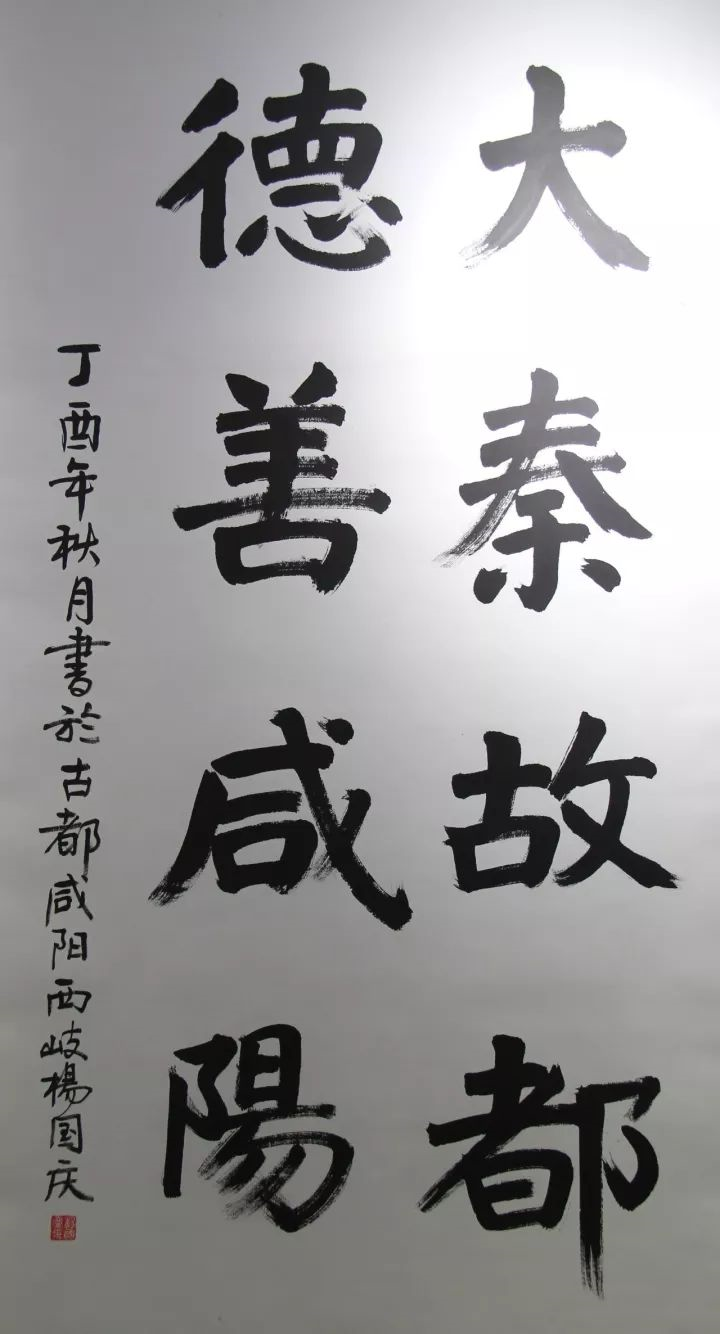 大秦故都
德善咸陽
丁酉年秋月書於古都咸阳西岐楊国庆